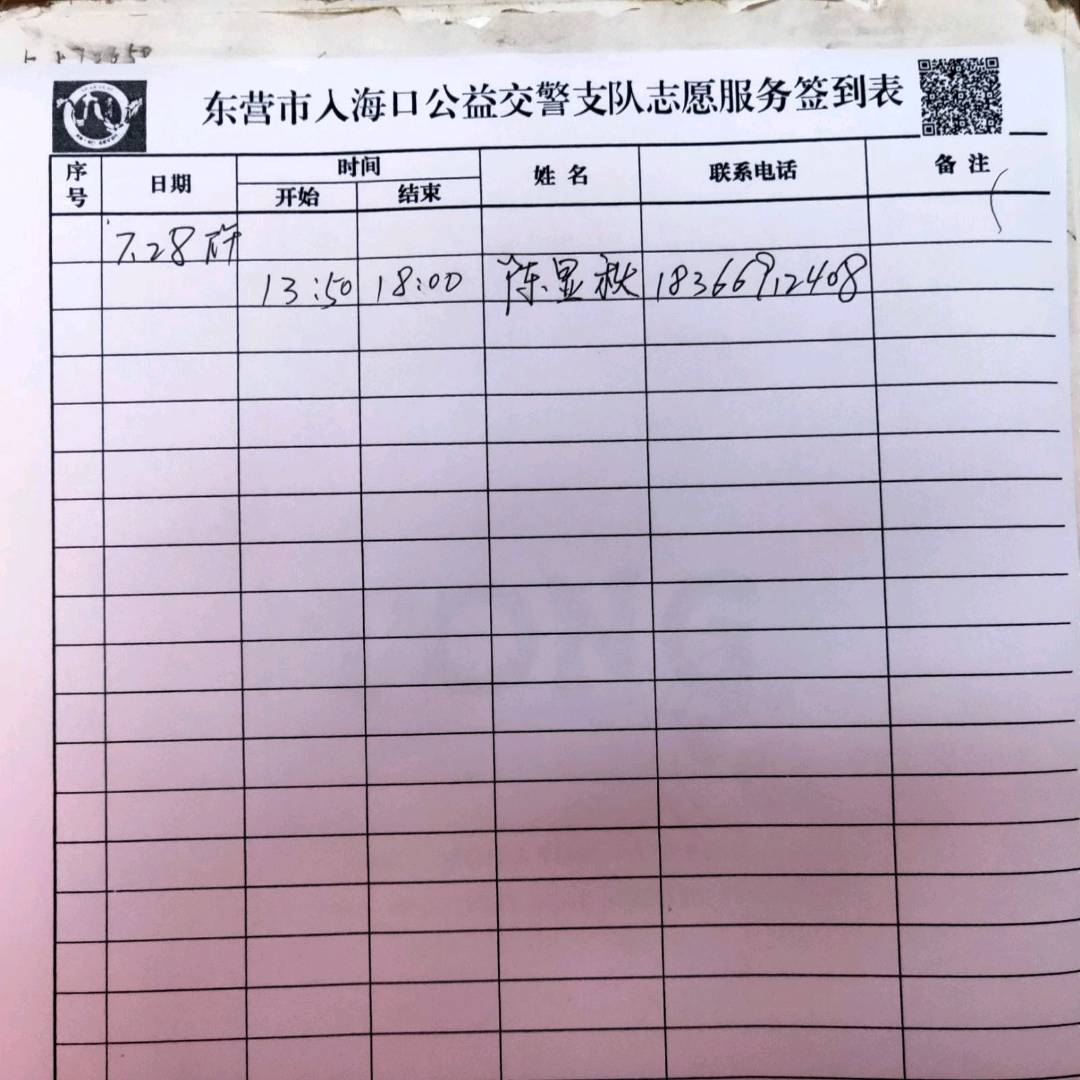 东营市入海口公益交警支队志愿服务签到表
序号 日期 时间 姓名 联系电话 备注
开始 结束
7.28
13:50 18:00 陈显秋 18366912408